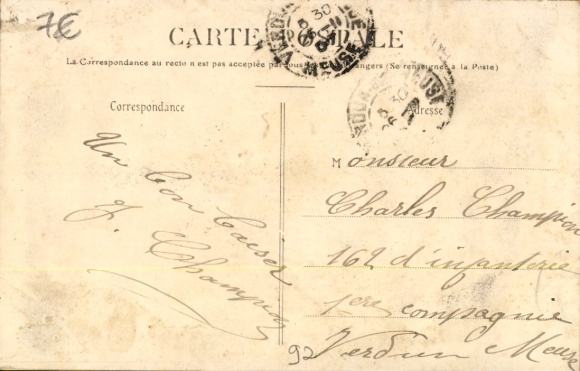 7€
CARTE POSTALE
La Correspondance au recto n'est pas acceptée par tous pays étrangers (Se renseigner à la Poste)
Correspondance
Adresse
Un bon baiser
J. Champion
Monsieur
Charles Champion
162 d'infanterie
1ère compagnie
Verdun Meuse
92
VERDUN
30
MEUSE
30
MEUSE